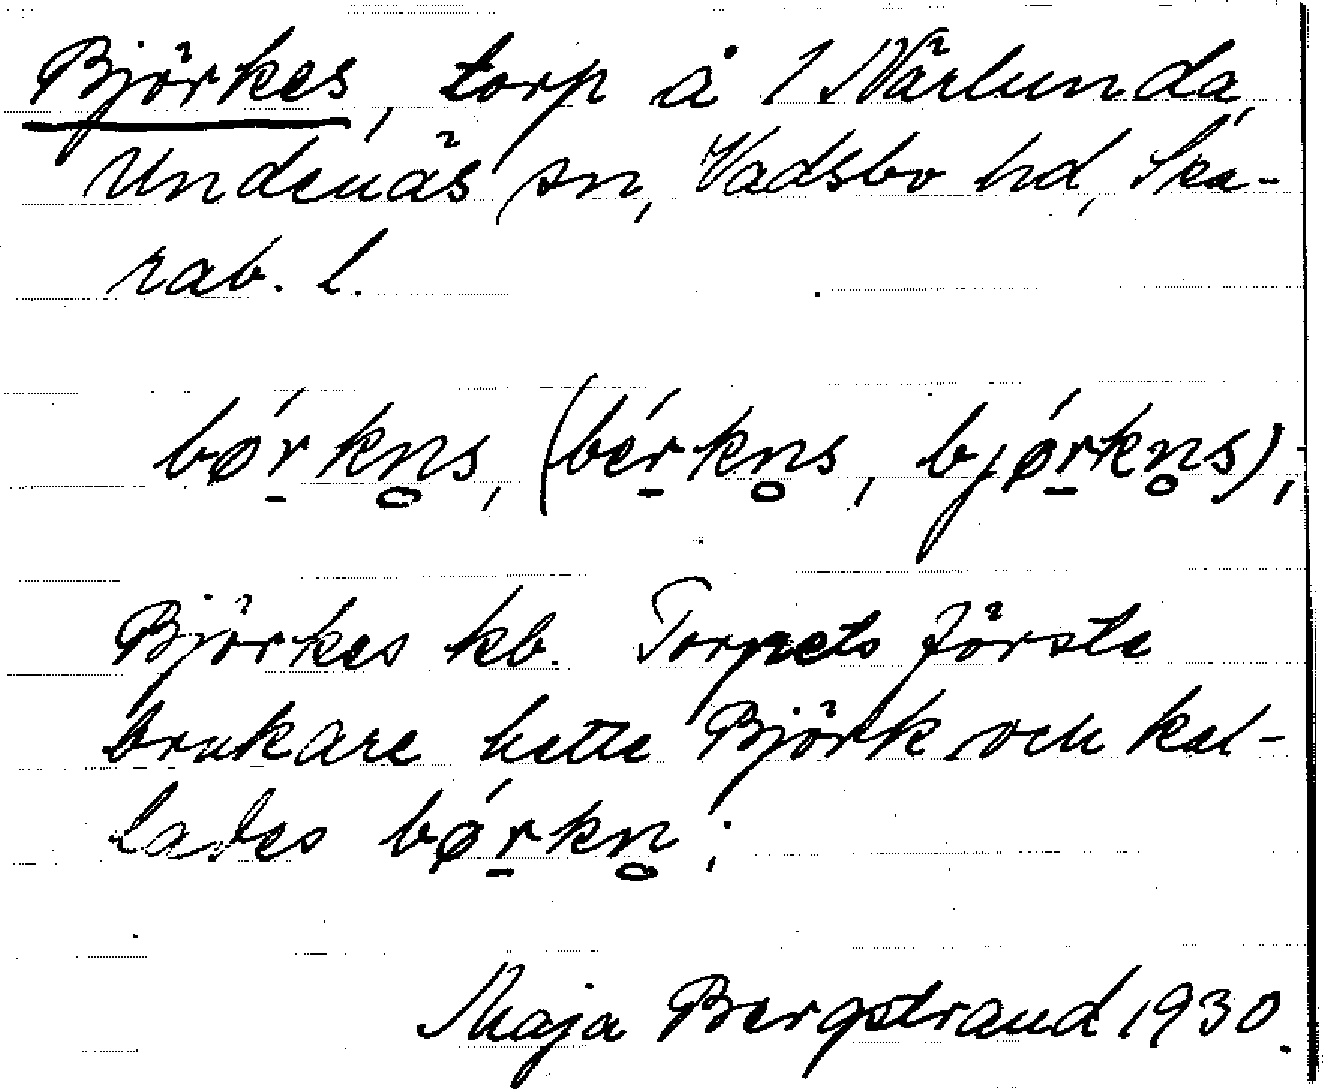 Björkes, torp å 1 Närlunda,
Undenäs sn, Vadsbo hd, Ska-
rab. l.
bǿr̠kn̥s, (bér̠kn̥s, bjǿr̠kn̥s);
Björkes kb. Torpets förste
brukare hette Björk och kal-
lades bǿr̠kn̥;
Maja Bergstrand 1930.